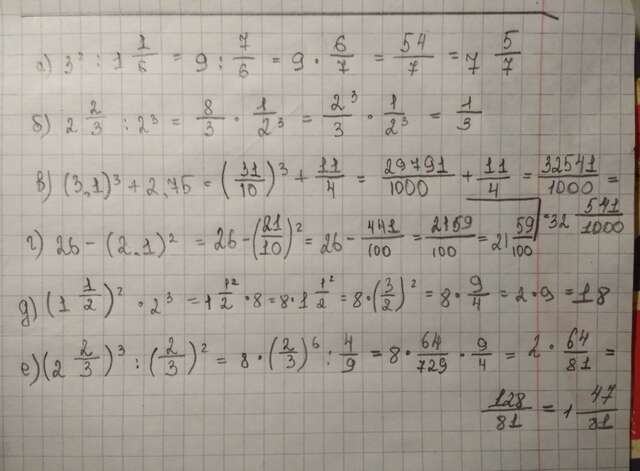 а) 3² : 1 1/6 = 9 : 7/6 = 9 · 6/7 = 54/7 = 7 5/7
б) 2 2/3 : 2³ = 8/3 · 1/2³ = 2³/3 · 1/2³ = 1/3
в) (3,1)³ + 2,75 = (31/10)³ + 11/4 = 29791/1000 + 11/4 = 32541/1000 =
= 32 541/1000
г) 26 - (2,1)² = 26 - (21/10)² = 26 - 441/100 = 2159/100 = 21 59/100
д) (1 1/2)² · 2³ = 1 1²/2 · 8 = 8 · 1 1²/2 = 8 · (3/2)² = 8 · 9/4 = 2 · 9 = 18
е) (2 2/3)³ : (2/3)² = 8 · (2/3)⁶ : 4/9 = 8 · 64/729 · 9/4 = 2 · 64/81 =
128/81 = 1 47/81